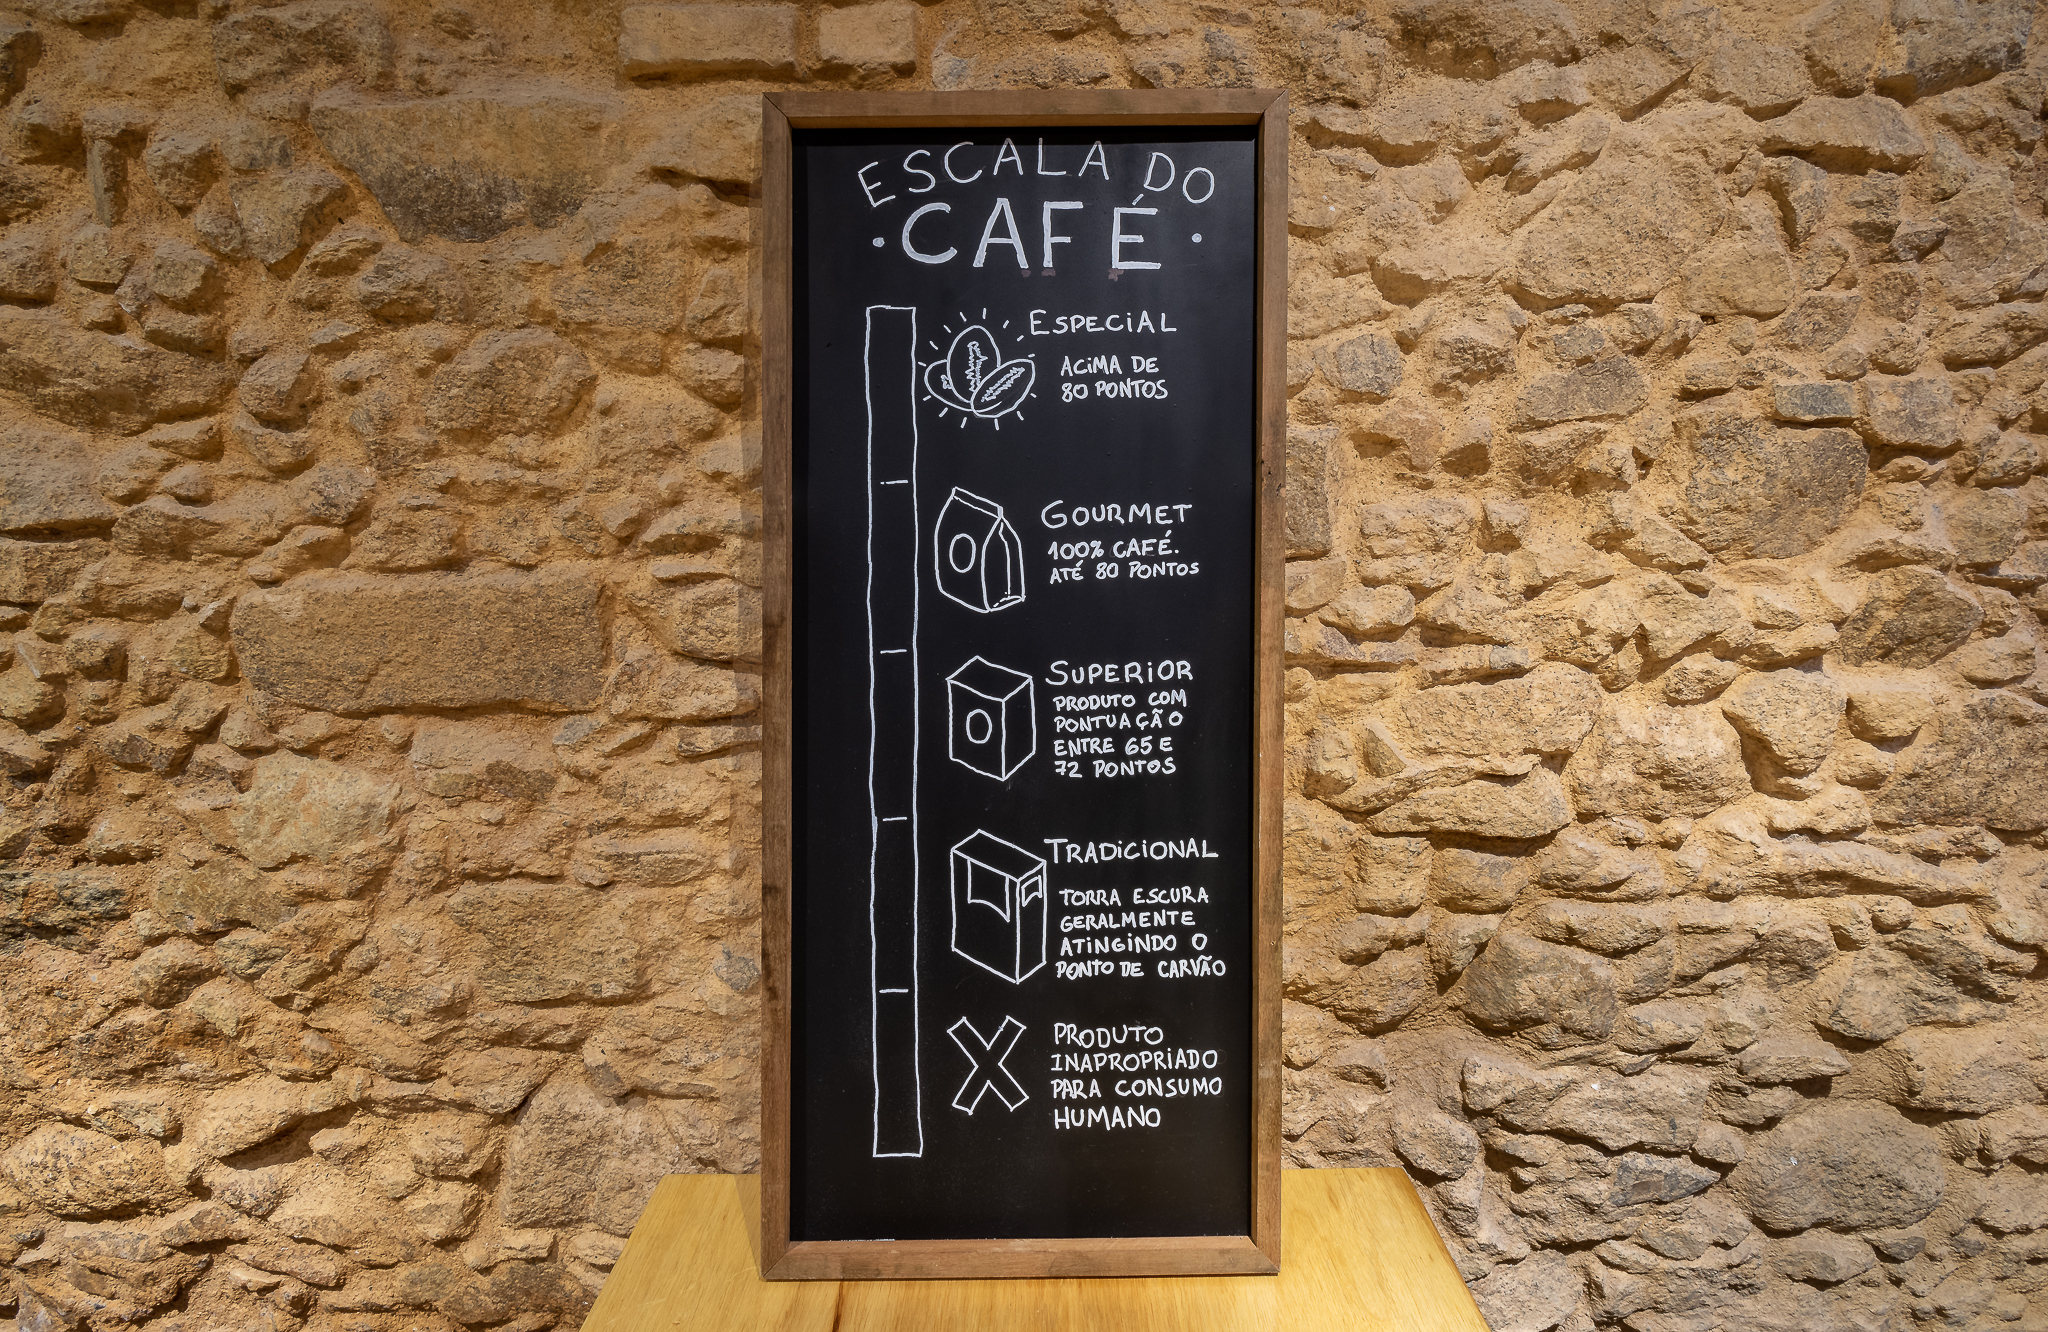 ESCALA DO
• CAFÉ •
ESPECIAL
ACIMA DE
80 PONTOS
GOURMET
100% CAFÉ.
ATÉ 80 PONTOS
SUPERIOR
PRODUTO COM
PONTUAÇÃO
ENTRE 65 E
72 PONTOS
TRADICIONAL
TORRA ESCURA
GERALMENTE
ATINGINDO O
PONTO DE CARVÃO
PRODUTO
INAPROPRIADO
PARA CONSUMO
HUMANO